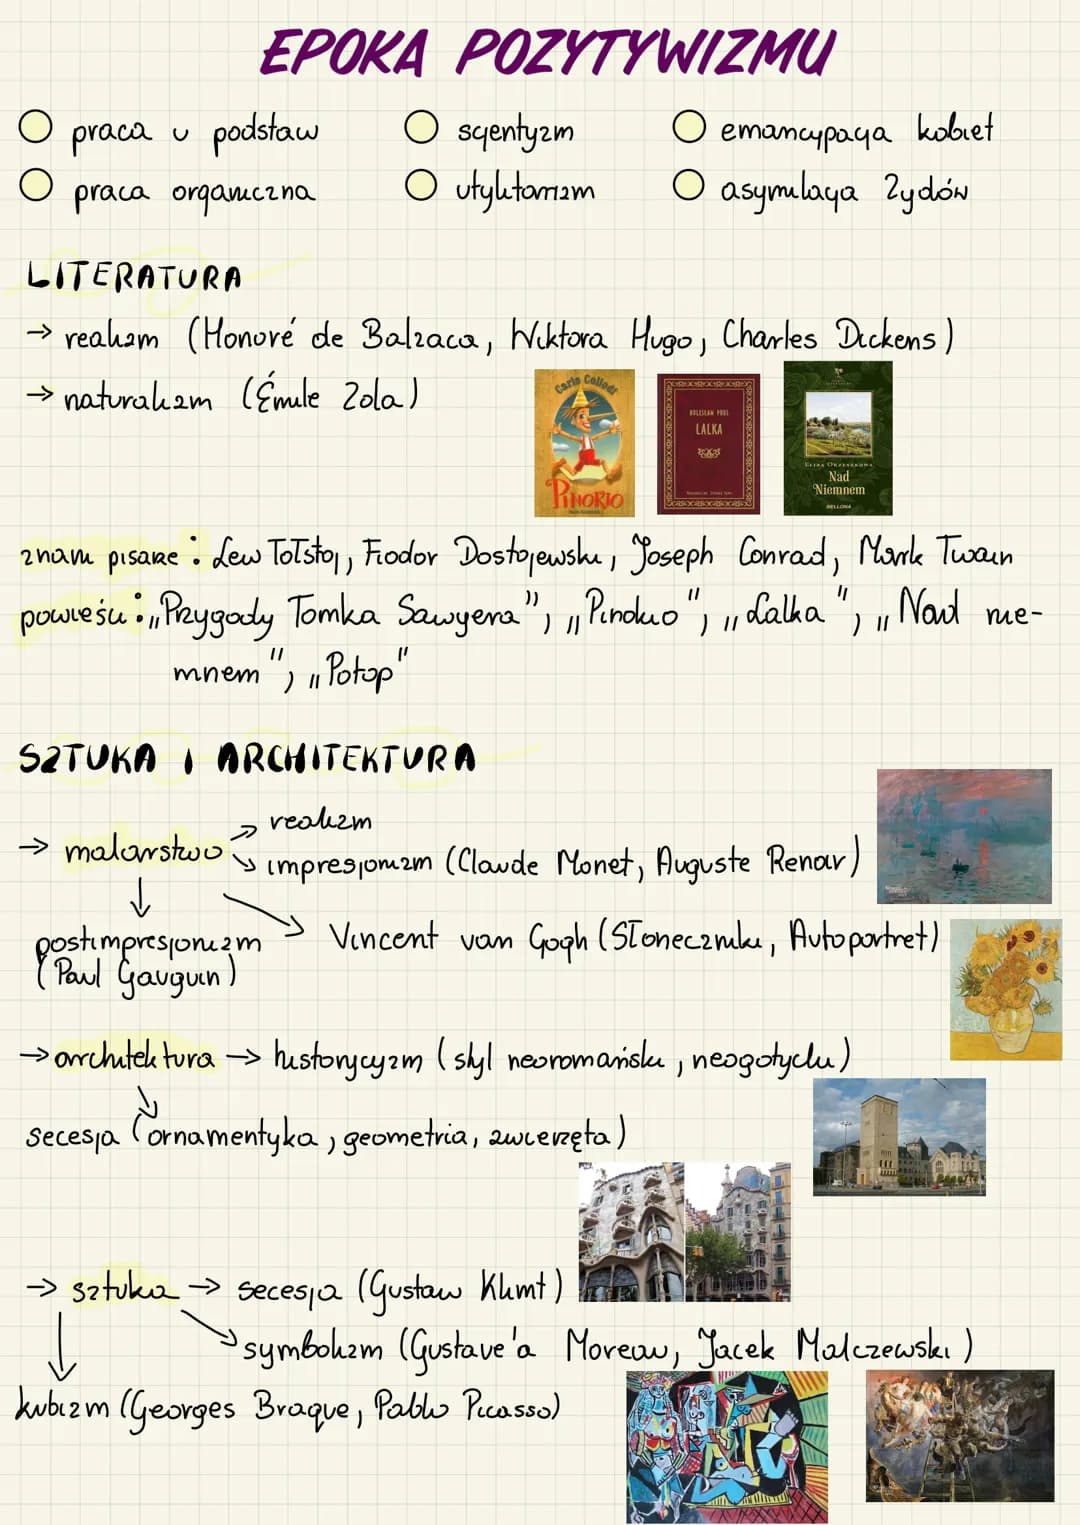 EPOKA POZYTYWIZMU
praca u podstaw
scjentyzm
emancypacja kobiet
praca organiczna
utylitaryzm
asymilacja Żydów
LITERATURA
→ realizm (Honoré de Balzaca, Wiktora Hugo, Charles Dickens)
→ naturalizm (Émile Zola)
Carlo Collodi
PINOKIO
BOLESŁAW PRUS
LALKA
ELIZA ORZESZKOWA
Nad
Niemnem
BELLONA
znani pisarze: Lew Tołstoj, Fiodor Dostojewski, Joseph Conrad, Mark Twain
powieści: „Przygody Tomka Sawyera", „Pinokio", „Lalka", „Nad nie-
mnem", „Potop"
SZTUKA I ARCHITEKTURA
→ malarstwo
realizm
impresjonizm (Claude Monet, Auguste Renoir)
postimpresjonizm
(Paul Gauguin)
Vincent van Gogh (Słoneczniki, Autoportret)
→ architektura → historycyzm (styl neoromański, neogotycki)
secesja (ornamentyka, geometria, zwierzęta)
→ sztuka → secesja (Gustaw Klimt)
symbolizm (Gustave'a Moreau, Jacek Malczewski)
kubizm (Georges Braque, Pablo Picasso)